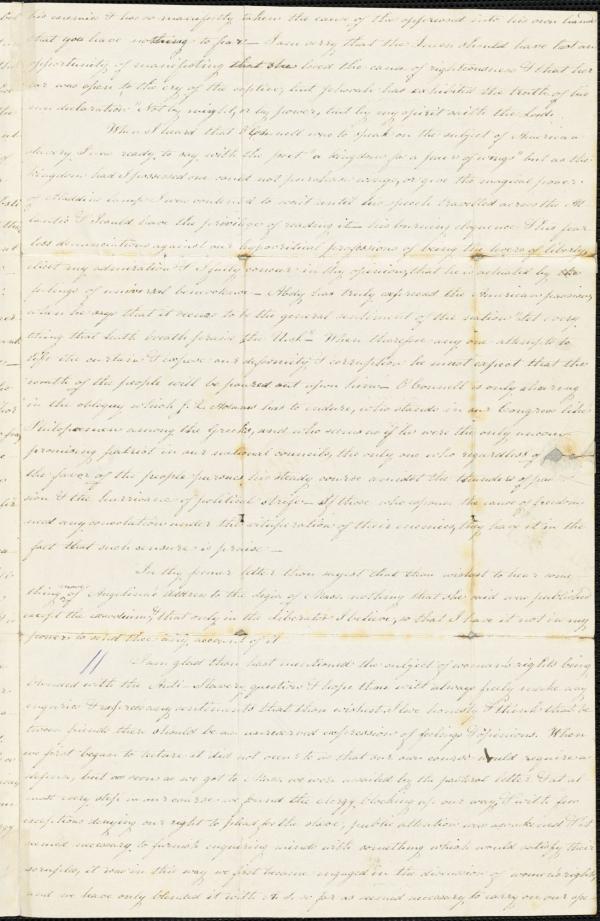 his enemies & has so manifestly taken the cause of the oppressed into his own hand
that you have nothing to fear — I am sorry that the should have lost an
opportunity of manifesting that she loved the cause of righteousness & that her
ear was open to the cry of the captive, but Jehovah has exhibited the truth of his
own declaration "Not by might, or by power, but by my spirit saith the Lord.
When I heard that O'Connell was to speak on the subject of American
slavery I was ready to say with the poet "a kingdom for a pair of wings" but as the
kingdom had I possessed one could not purchase wings, or give the magical power
of Aladdins lamp I was contented to wait until his speech travelled across the At
lantic & I could have the privilege of reading it — his burning eloquence & his fear
less denunciations against our hypocritical professions of being the lovers of liberty
elicit my admiration & I fully concur in thy opinion, that he is actuated by the
feelings of universal benevolence — Abdy has truly expressed the American passion
when he says that it seems to be the general sentiment of the nation "Let every
thing that hath breath praise the Utah" — When therefore any one attempts to
lift the curtain & expose our deformity & corruption he must expect that the
wrath of the people will be poured out upon him — O'Connell is only sharing
in the obloquy which J. Q. Adams has to endure, who stands in our Congress like
Philopoemen among the Greeks, and who seems as if he were the only uncom
promising patriot in our national councils, the only one who regardless of
the favor of the people pursues his steady course amidst the thunders of pas
sion & the hurricane of political strife — If those who espouse the cause of freedom
need any consolation under the vituperation of their enemies, they have it in the
fact that such censure is praise —
In thy former letter thou sayest that thou wishest to hear some
thing more of Angelina's address to the Legis of Mass. nothing that she said was published
except the exordium, & that only in the liberator I believe, so that I have it not in my
power to send thee any account of it
// I am glad thou hast mentioned the subject of woman's rights being
blended with the Anti-Slavery question & hope thou will always freely make any
enquiries & express any sentiments that thou wishest. I love honesty & I think that be
tween friends there should be an unreserved expression of feelings & opinions. When
we first began to lecture it did not occur to us that our own course would require a
defence, but as soon as we got to Mass. we were assailed by the pastoral letter & at al
most every step in our course we found the clergy blocking up our way, & with few
exceptions denying our right to plead for the slave; public attention was awakened & it
seemed necessary to furnish enquiring minds with something which would satisfy their
scruples, it was in this way we first became engaged in the discussion of woman's rights
and we have only blended it with A. S. so far as seemed necessary to carry on our ope